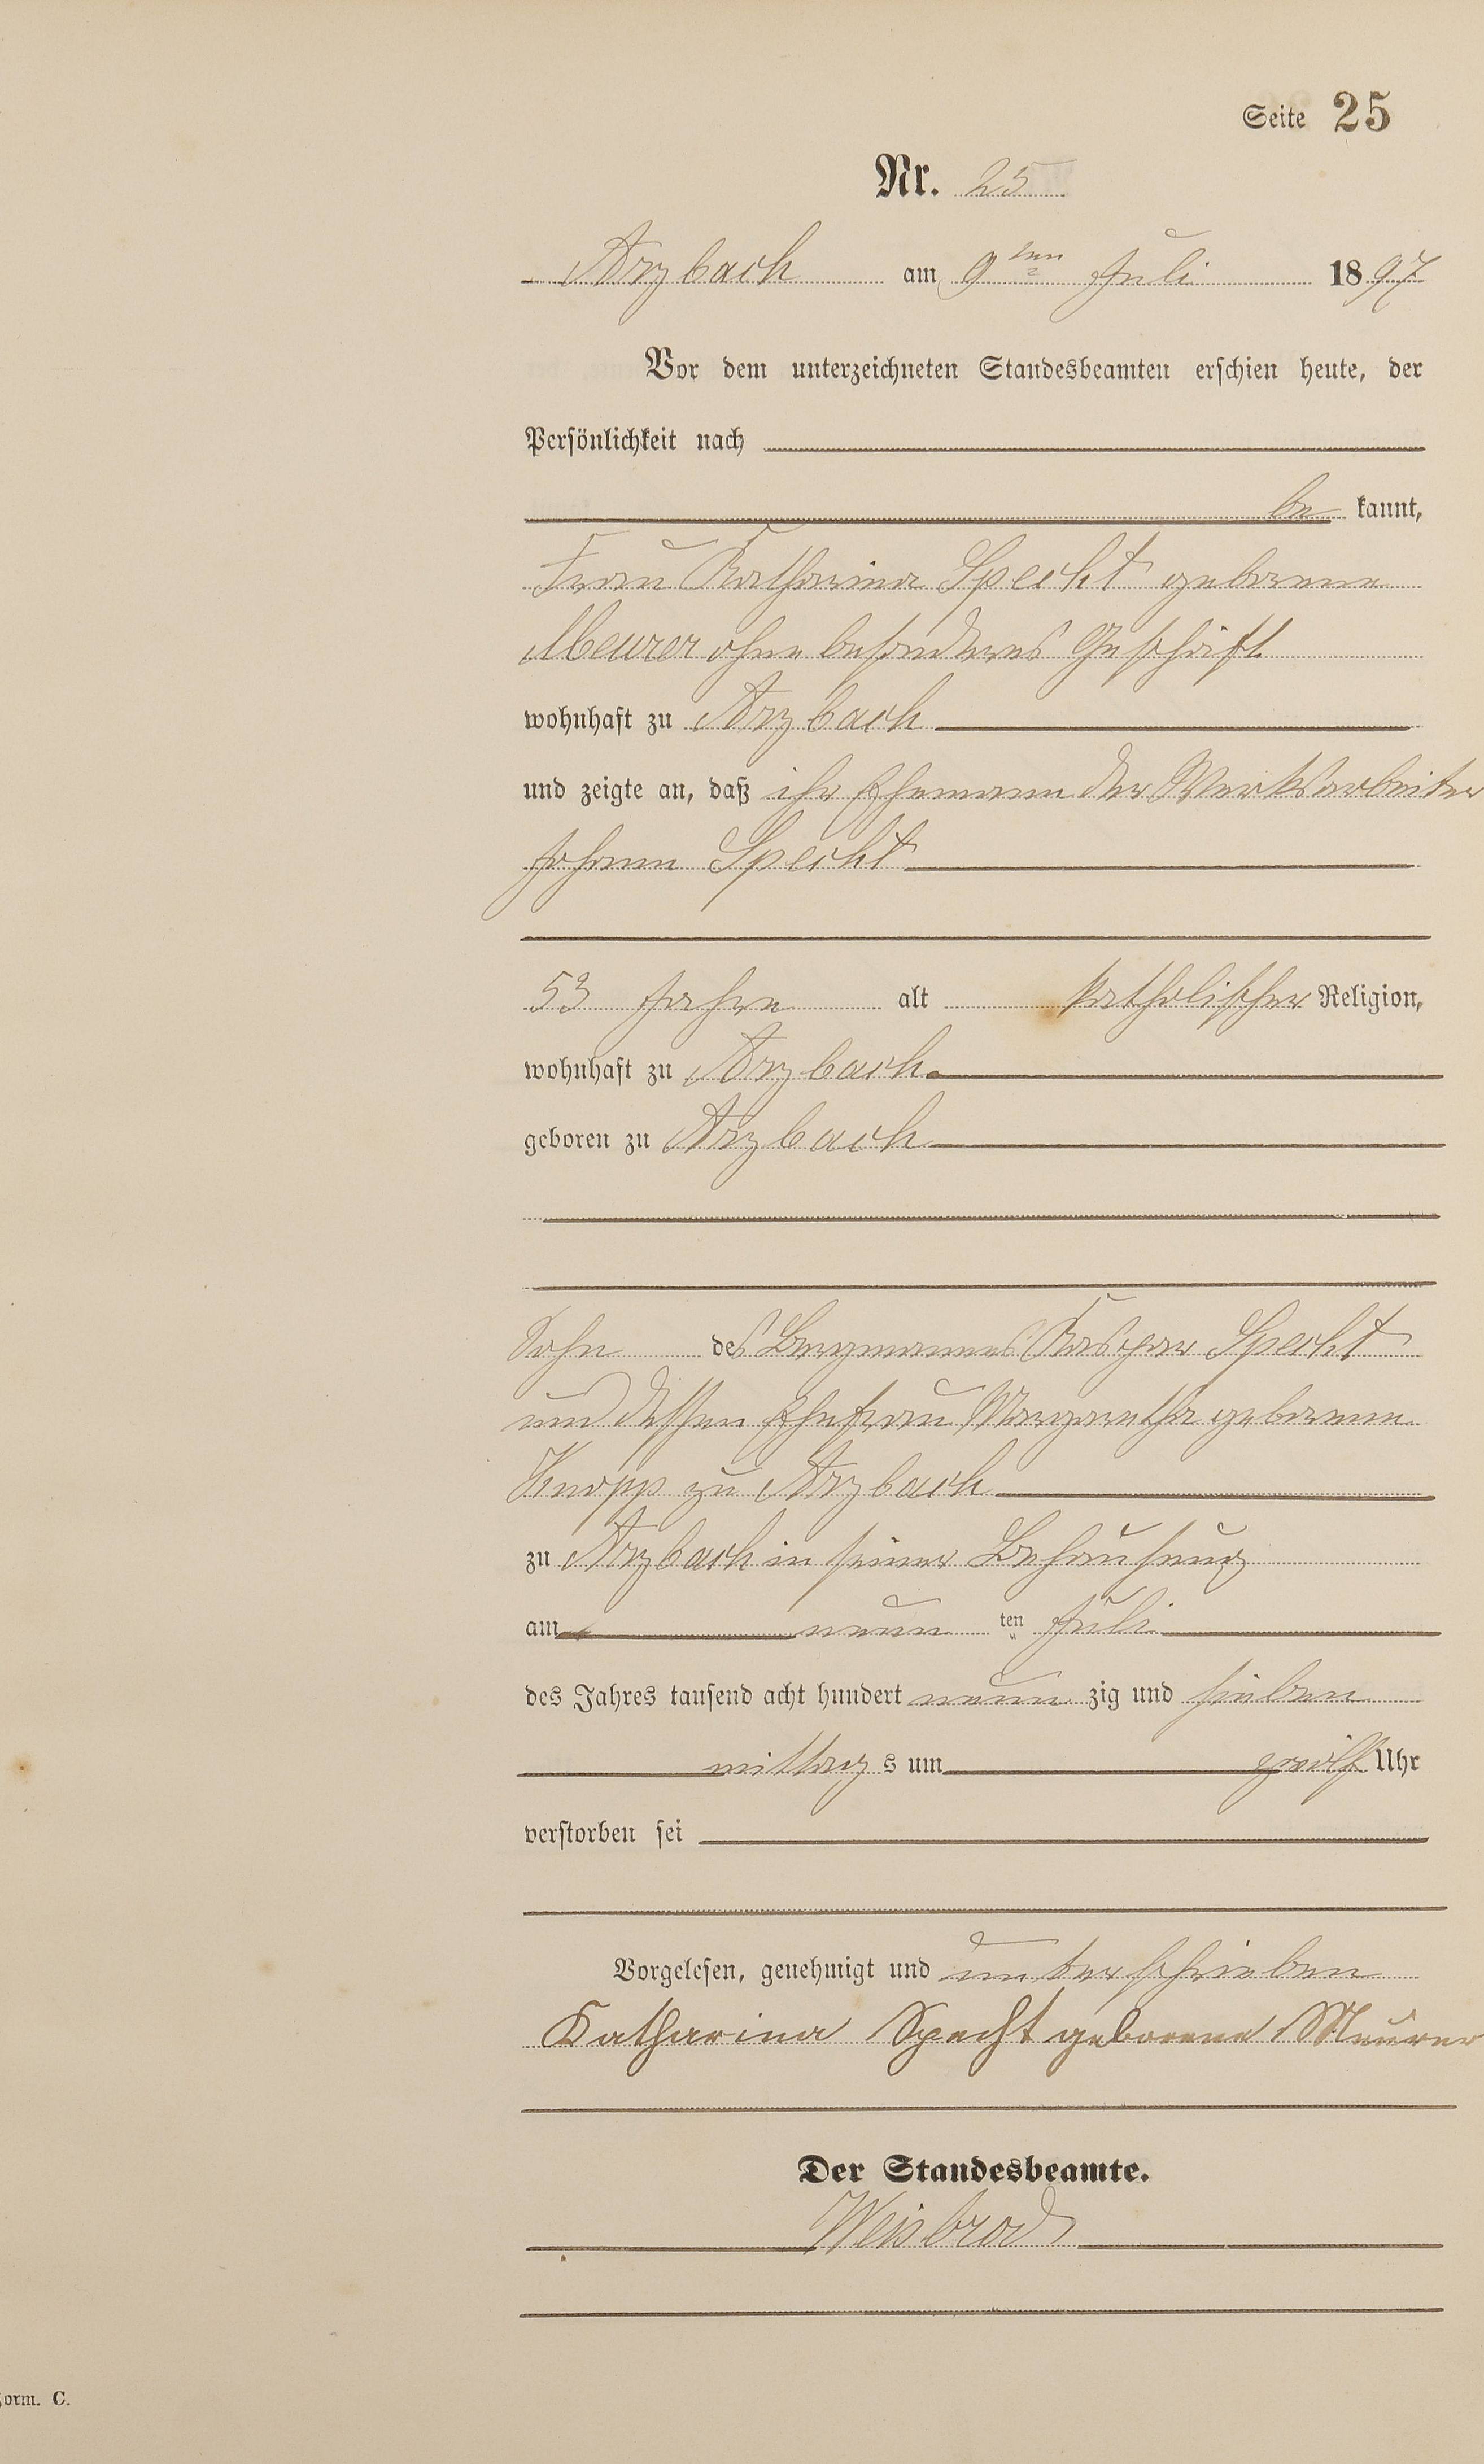 Seite 25
Nr. 25
Arzbach am 9ten Juli 1897
Vor dem unterzeichneten Standesbeamten erschien heute, der
Persönlichkeit nach
be kannt,
Frau Katharina Specht geborene
Meurer ohne besonderes Geschäft
wohnhaft zu Arzbach
und zeigte an, daß ihr Ehemann der Werksarbeiter
Johann Specht
53 Jahre alt katholischer Religion,
wohnhaft zu Arzbach
geboren zu Arzbach
Sohn des Bergmannes Kaspar Specht
und dessen Ehefrau Margaretha geborene
Knopp zu Arzbach
zu Arzbach in seiner Behausung
am neun ten Juli
des Jahres tausend acht hundert neun zig und sieben
mittag s um zwölf Uhr
verstorben sei
Vorgelesen, genehmigt und unterschrieben
Katharina Specht geborene Meurer
Der Standesbeamte.
Weisbrod
orm. C.